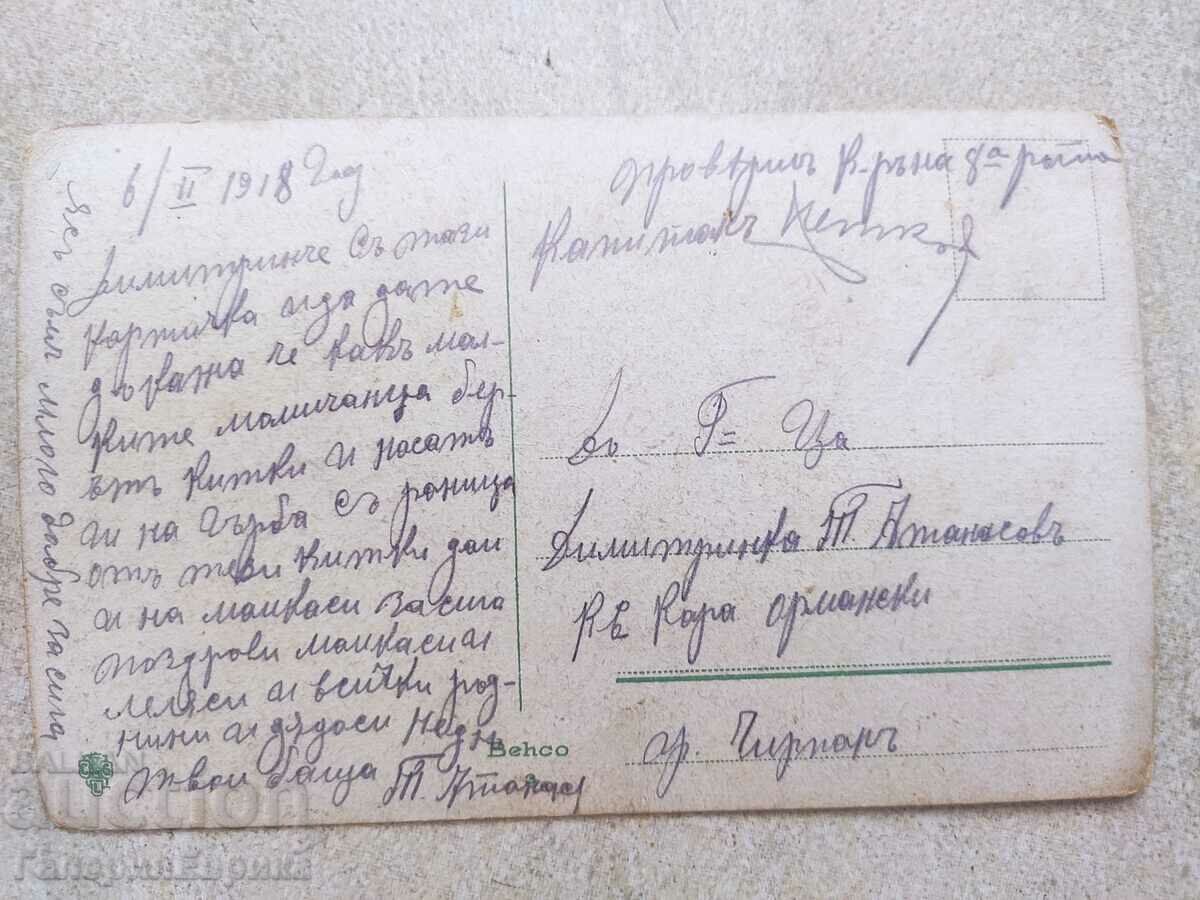 6/II 1918 Год
Димитринче съ тази
картичка ида да те
докажа че какъ мал-
ките момичанца бер-
ътъ китки и носатъ
ги на гърба съ раница
отъ тези китки дай
и на майкаси засига
поздрави майкаси и
леляси и всички род-
нини и дядоси Недю
твой баща Т. Атанас
Язъ съмъ много добре засига
Проверилъ К-ръ на 8а рота
Капитанъ Петков
До Г-ца
Димитринка Т. Атанасовъ
Кв Кара ормански
гр. Чирпанъ
Behco
BALKAN
auction
Галерия Еврика